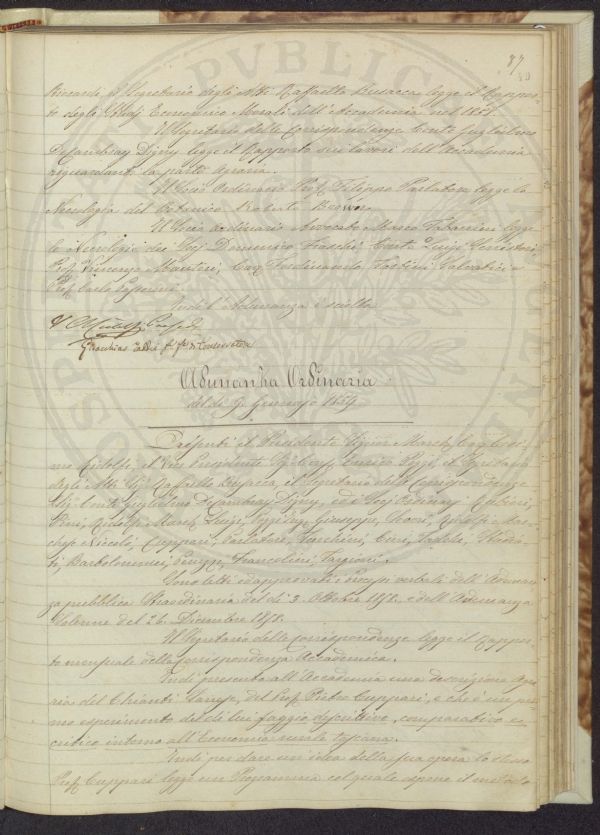 87
Segretario degli Atti Raffaello Lusacca legge il Rappor-
to degli Studj Economico Morali dell'Accademia nel 1858.
Il Segretario delle Corrispondenze Conte Guglielmo
Digny legge il Rapporto sui lavori dell'Accademia
riguardanti la parte Agraria.
Il Socio Ordinario Prof. Filippo Parlatore legge la
Necrologia del Botanico Roberto Brown.
Il Socio ordinario Avvocato Marco Tabarrini legge
le Necrologie dei Domenico Conte Luigi
Prof. Vincenzo Cav. Ferdinando Tartini Salvatici e
Prof. Carlo Passerini.
Indi l'Adunanza è sciolta
V. C. Ridolfi
Adunanza Ordinaria
del dì 9. Gennajo 1859
Presenti il Presidente Signor March. Cav. Cosi-
mo Ridolfi, il Vice Presidente Enrico il Segretario
degli Atti Sig. Raffaello Lusacca, il Segretario delle Corrispondenze
Sig. Conte Guglielmo Digny, ed i Socj Ordinarj
Ridolfi March. Luigi, Giuseppe, Ridolfi Mar-
chese Niccolò, Cuppari, Parlatore,
Bartolommei, Francolini, Targioni.
Sono letti ed approvati i Processi verbali dell'Adunan-
za pubblica Straordinaria del dì 3. Ottobre 1858. e dell'Adunanza
Solenne del 26. Dicembre 1858.
Il Segretario delle Corrispondenze legge il Rappor-
to mensuale della Corrispondenza Accademica.
Indi presenta all'Accademia una descrizione Agra-
ria del Chianti del Prof. Pietro Cuppari, e che è un pri-
mo esperimento del di lui saggio descrittivo, comparativo e
critico intorno all'Economia rurale toscana.
Indi per dare un'idea della sua opera lo stesso
Prof. Cuppari legge un Programma col quale espone il metodo